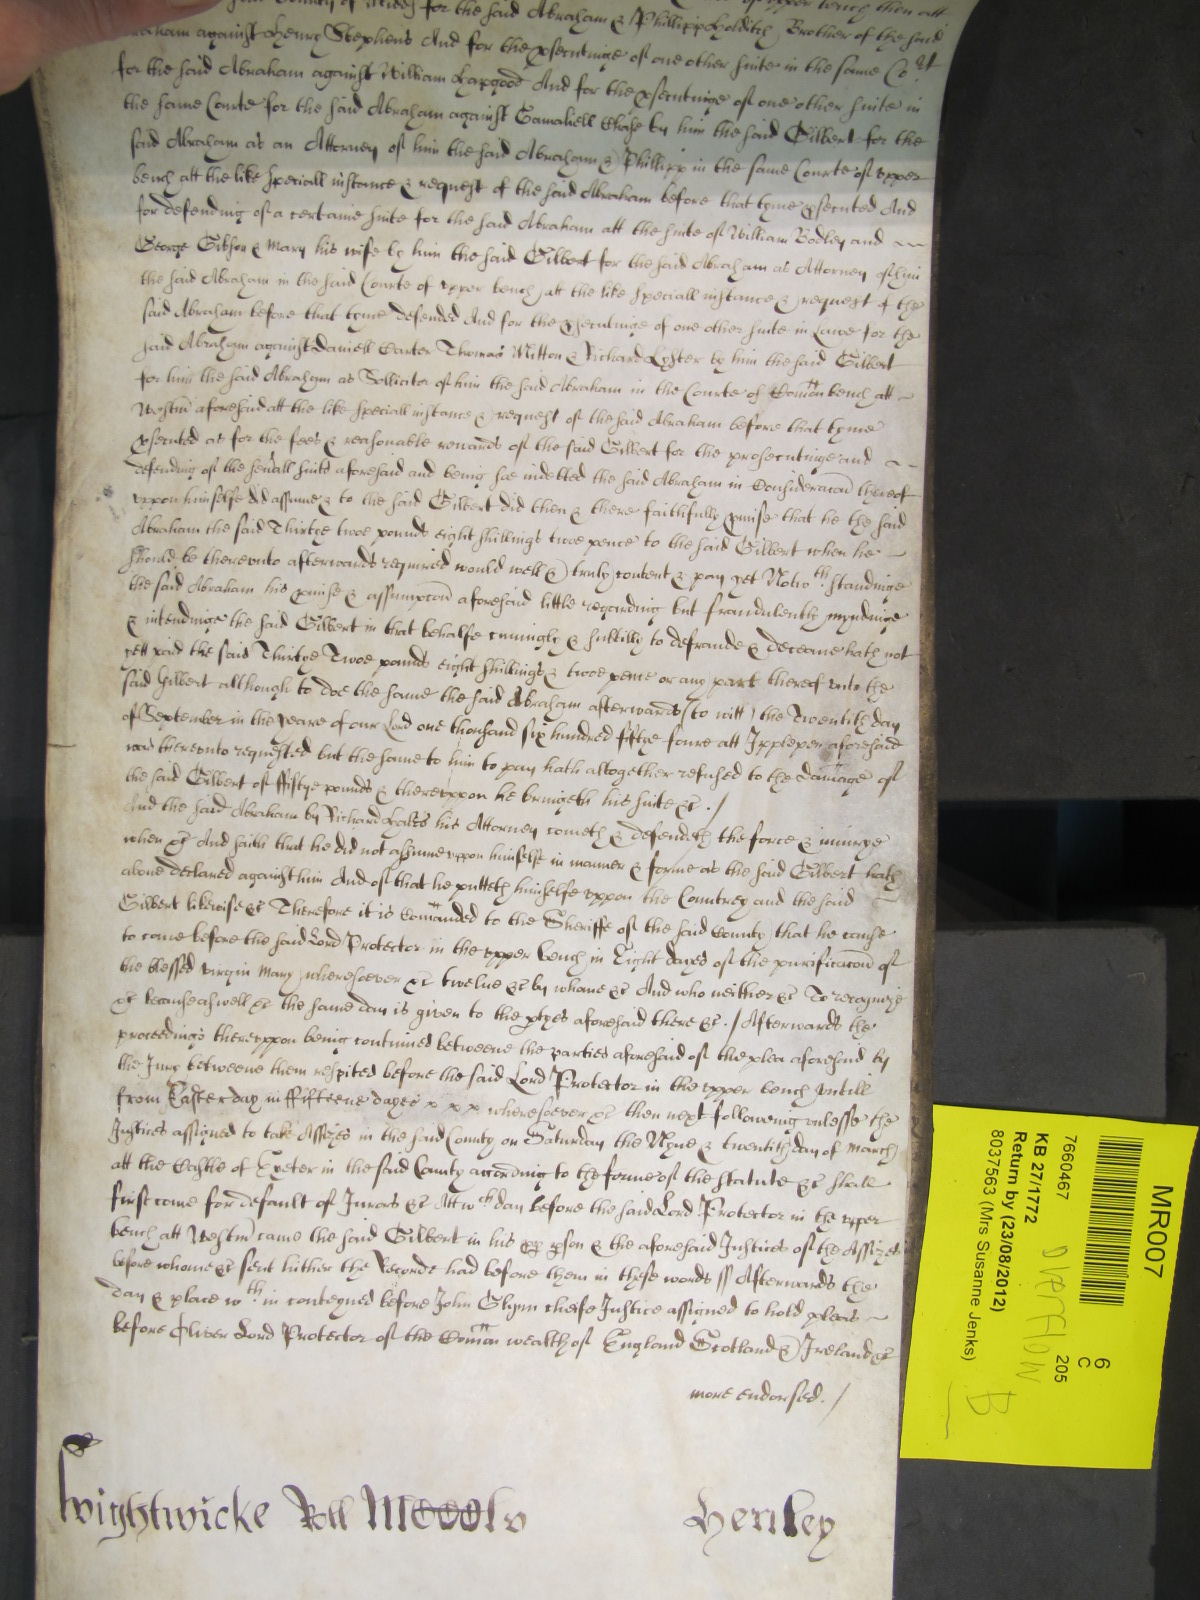 for the said Abraham & Phillipp Holditch Brother of the said
Abraham against Henry Stephens And for the psecutinge of one other suite in the same Cort
for the said Abraham against William Hapgood And for the psecutinge of one other suite in
the same Courte for the said Abraham against Gamaliell Chase by him the said Gilbert for the
said Abraham as an Attorney of him the said Abraham & Phillipp in the same Courte of upper
bench att the like speciall instance & request of the said Abraham before that tyme psecuted And
for defending of a certaine suite for the said Abraham att the suite of William Bodley and
George Gibson & Mary his wife by him the said Gilbert for the said Abraham as Attorney of him
the said Abraham in the said Courte of upper bench att the like speciall instance & request of the
said Abraham before that tyme defended And for the psecutinge of one other suite in Lawe for the
said Abraham against Daniell Carter Thomas Mitton & Richard Lyster by him the said Gilbert
for him the said Abraham as Sollicitor of him the said Abraham in the Courte of Comon bench att
Westm aforesaid att the like speciall instance & request of the said Abraham before that tyme
psecuted as for the fees & reasonable rewards of the said Gilbert for the prosecutinge and
defending of the sevall suits aforesaid and being soe indebted the said Abraham in Consideracon thereof
uppon himselfe did assume & to the said Gilbert did then & there faithfully pmise that he the said
Abraham the said Thirtye twoe pounds eight shillings twoe pence to the said Gilbert when he
should be thereunto afterwards required would well & truly content & pay yet Notwthstandinge
the said Abraham his pmise & assumpcon aforesaid little regarding but fraudulently myndinge
& intendinge the said Gilbert in that behalfe cuningly & subtilly to defraude & deceave hath not
yett paid the said Thirtye Twoe pounds eight shillings & twoe pence or any part thereof unto the
said Gilbert although to doe the same the said Abraham afterwards (to witt) the Twentith day
of September in the yeare of our Lord one thousand six hundred fiftye foure att Ipplepen aforesaid
was thereunto requested but the same to him to pay hath altogether refused to the damage of
the said Gilbert of ffiftye pounds & thereuppon he bringeth his suite &c. /
And the said Abraham by Richard Hals his Attorney cometh & defendeth the force & iniurye
when &c And saith that he did not assume uppon himselfe in manner & forme as the said Gilbert hath
above declared against him And of that he putteth himselfe uppon the Countrey and the said
Gilbert likewise &c Therefore it is Comanded to the Sheriffe of the said County that he cause
to come before the said Lord Protector in the upper bench in Eight dayes of the purificacon of
the blessed virgin Mary wheresoever &c twelve &c by whome &c And who neither &c To recognize
&c because aswell &c the same day is given to the ptyes aforesaid there &c. / Afterwards the
proceedings thereuppon being continued betweene the parties aforesaid of the plea aforesaid by
the Jury betweene them respited before the said Lord Protector in the upper bench untill
from Easter day in ffifteene dayes x x x wheresoever &c then next followeing unlesse the
Justices assigned to take Assizes in the said County on Saturday the Nyne & twentith day of March
att the Castle of Exeter in the said County according to the forme of the statute &c shall
first come for default of Jurors &c Att wch day before the said Lord Protector in the upper
bench att Westm came the said Gilbert in his pp pson & the aforesaid Justices of the Assizes
before whome &c sent hither the Records had before them in these words // Afterwards the
day & place wthin conteyned before John Glynn cheife Justice assigned to hold pleas
before Oliver Lord Protector of the Comon wealth of England Scotland & Ireland &c
more endorsed. /
Wightwicke Roll
Henley
MR007
6
C
205
7660467
KB 27/1772
Return by (23/08/2012)
8037563 (Mrs Susanne Jenks)
OVERFLOW
B